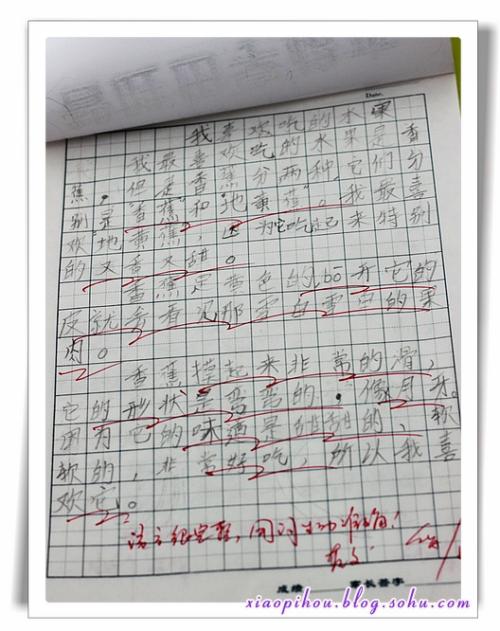 Date.
我喜欢吃的水果
我最喜欢吃的水果是香
蕉，但是香蕉分两种，它们分
别是“香蕉”和“地黄蕉”。我最喜
欢“地黄蕉”，因为它吃起来特别
的又香又甜。
香蕉是黄色的，bō开它的
皮就看看见那雪白雪白的果
肉。
香蕉摸起来非常的滑，
它的形状是弯弯的，像月牙。
因为它的味道是甜甜的、软
软的，非常好吃，所以我喜
欢它。
语言很完整，用词生动准确！
成绩 家长签字
xiaopihou.blog.sohu.com